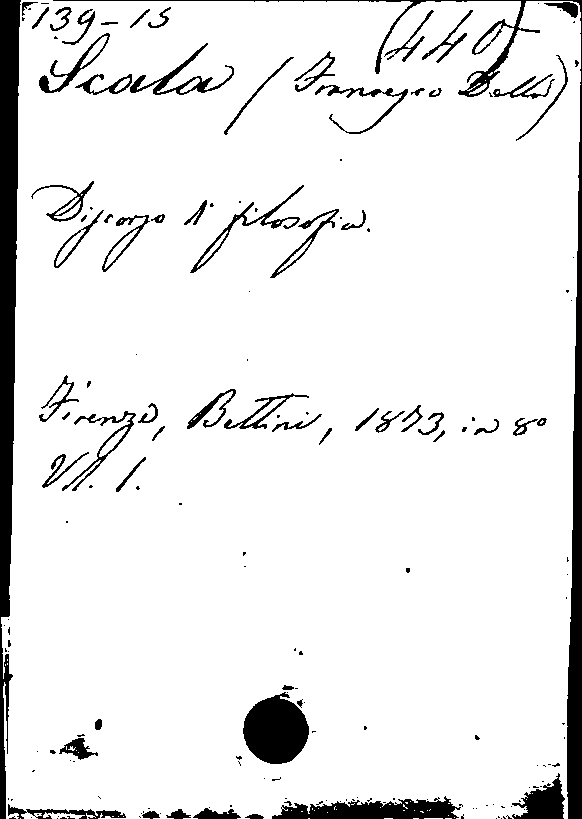 139-15 (440)
Scala (Francesco Della)
Discorso di filosofia.
Firenze, Bettini, 1873, in 8º
Vol. 1.